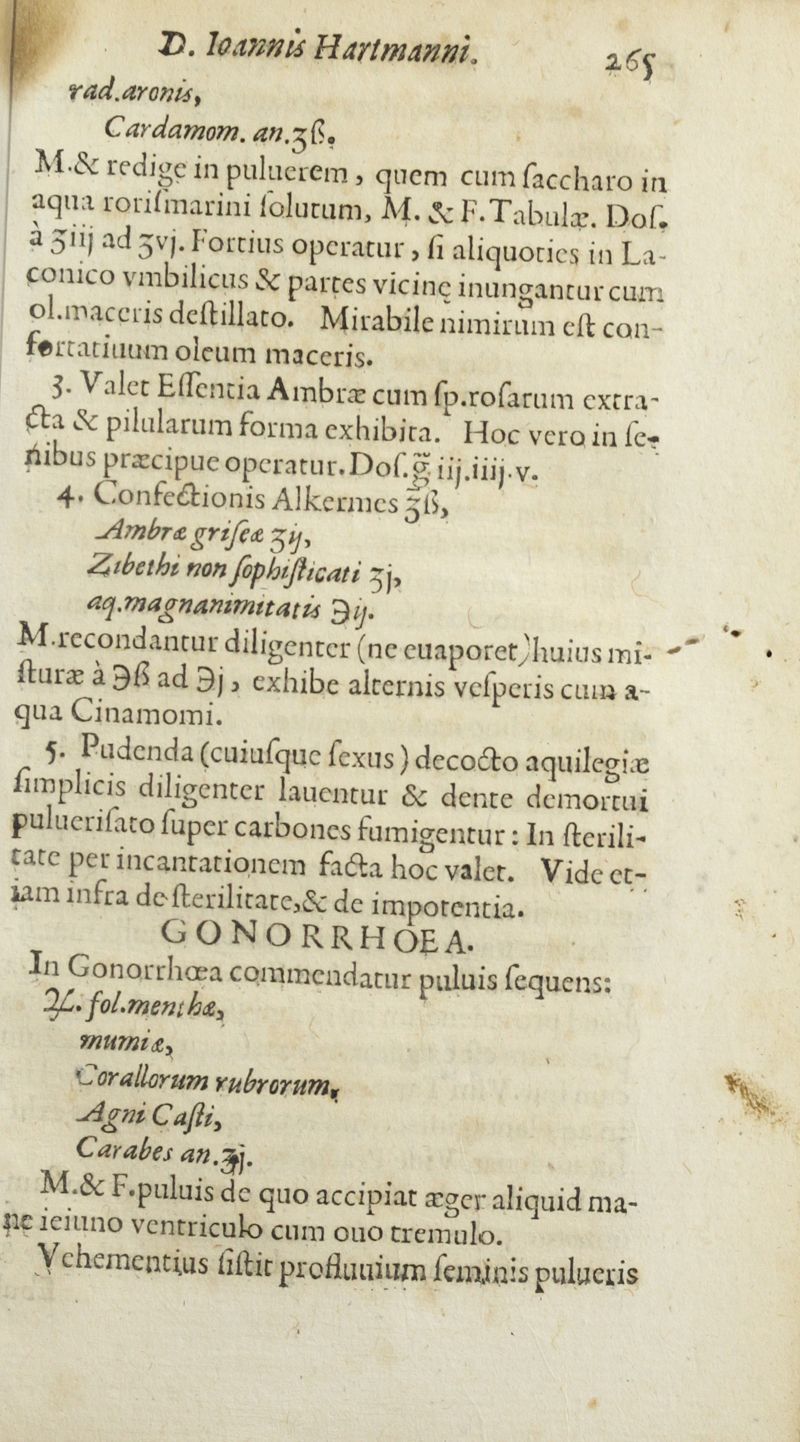 D. Ioannis Hartmanni. 265
rad.aronis,
Cardamom. an.ʒß.
M.& redige in puluerem, quem cum ſaccharo in
aqua roriſmarini ſolutum, M. & F.Tabulæ. Doſ.
à ʒiij ad ʒvj. Fortius operatur, ſi aliquoties in La-
conico vmbilicus & partes vicinę inungantur cum
ol.maceris deſtillato. Mirabile nimirùm eſt con-
fortatiuum oleum maceris.
3. Valet Eſſentia Ambræ cum ſp.roſarum extra-
cta & pilularum forma exhibita. Hoc vero in ſe-
nibus præcipue operatur. Doſ.g̃ iij.iiij.v.
4. Confectionis Alkermes ℥ß,
Ambræ griſeæ ʒij,
Zibethi non ſophiſticati ʒj,
aq.magnanimitatis ℈ij.
M.recondantur diligenter (ne euaporet) huius mi-
ſturæ à ℈ß ad ℈j, exhibe alternis veſperis cum a-
qua Cinamomi.
5. Pudenda (cuiuſque ſexus) decocto aquilegiæ
ſimplicis diligenter lauentur & dente demortui
pulueriſato ſuper carbones fumigentur: In ſterili-
tate per incantationem facta hoc valet. Vide et-
iam infra de ſterilitate,& de impotentia.
GONORRHOEA.
In Gonorrhœa commendatur puluis ſequens:
℞. fol.menthæ,
mumiæ,
Corallorum rubrorum,
Agni Caſti,
Carabes an.ʒj.
M.& F.puluis de quo accipiat æger aliquid ma-
ne ieiuno ventriculo cum ouo tremulo.
Vehementius ſiſtit profluuium ſeminis pulueris